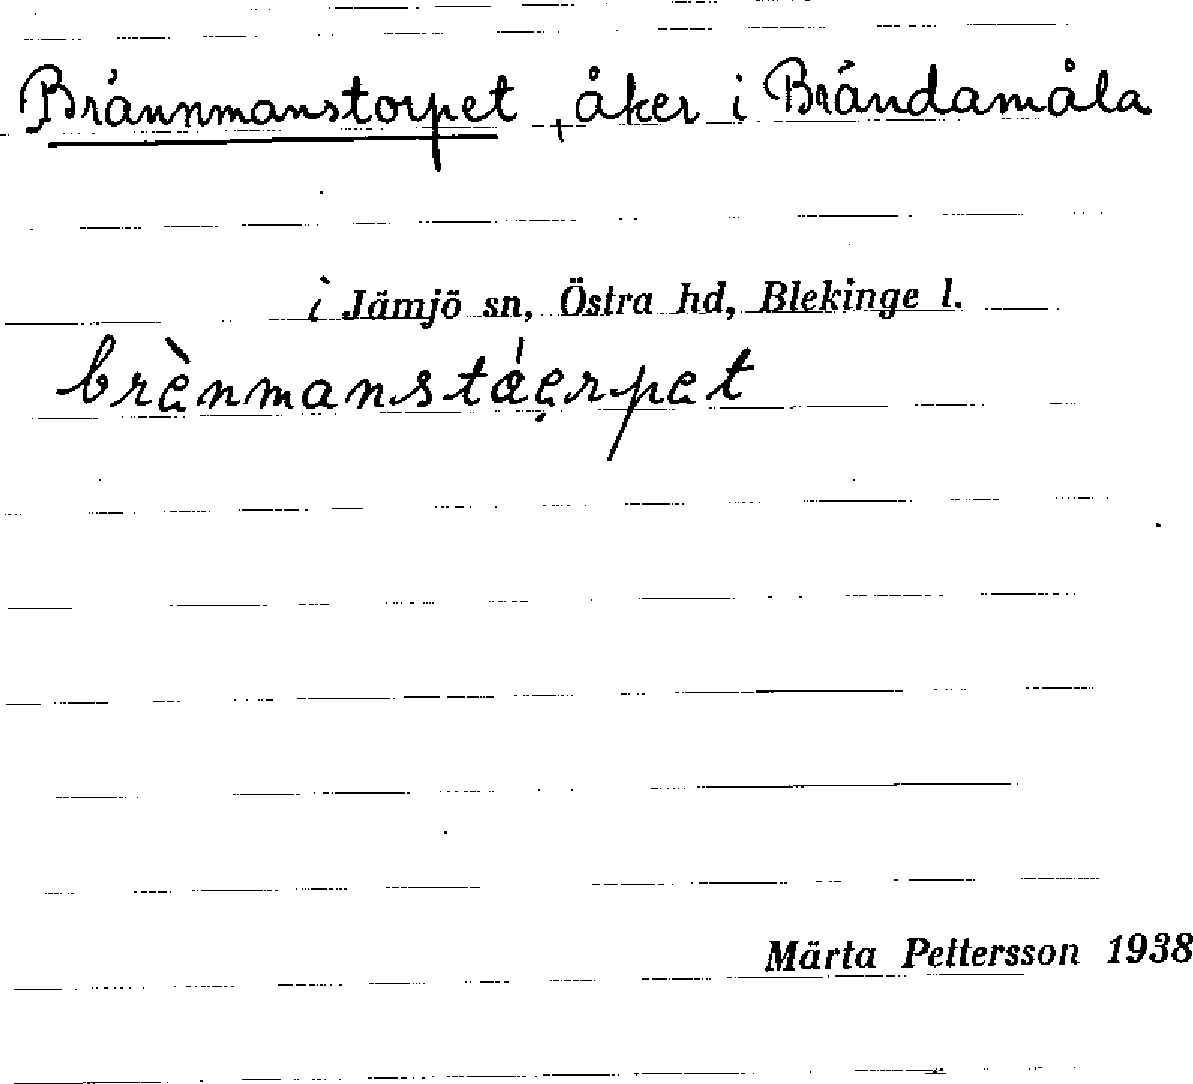 Brännmanstorpet, åker i Brändamåla
i Jämjö sn, Östra hd, Blekinge l.
brènmanstáerpet
Märta Pettersson 1938